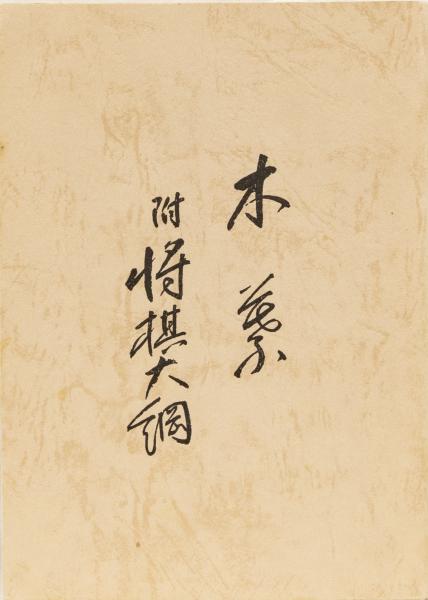 木葉
附 将棋大綱